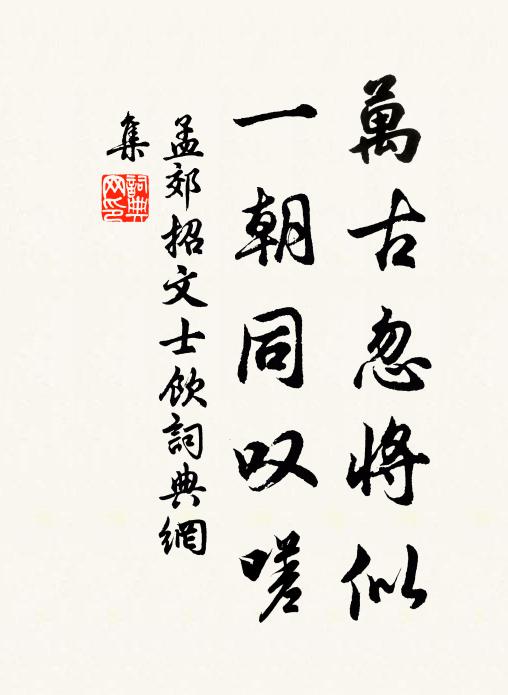 萬古忽将似
一朝同叹嗟
孟郊招文士飲詞典網
集
詞典网印